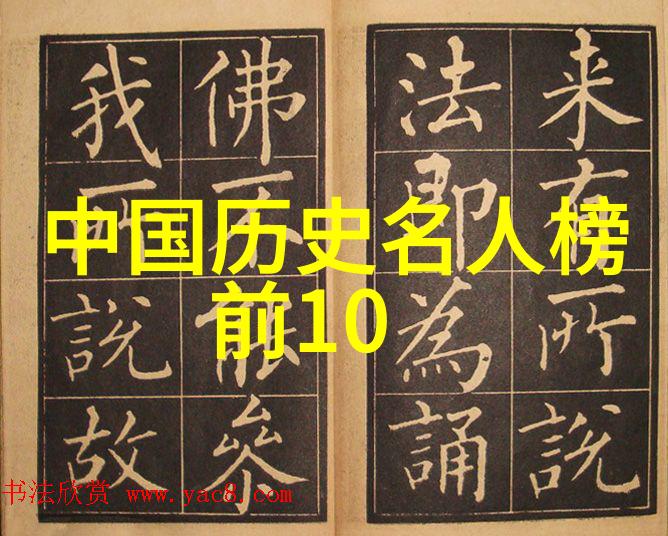 中国历史名人榜
前10
来 所說
法即為誦
佛不能
我所說故
书法欣赏 www.yac8.com